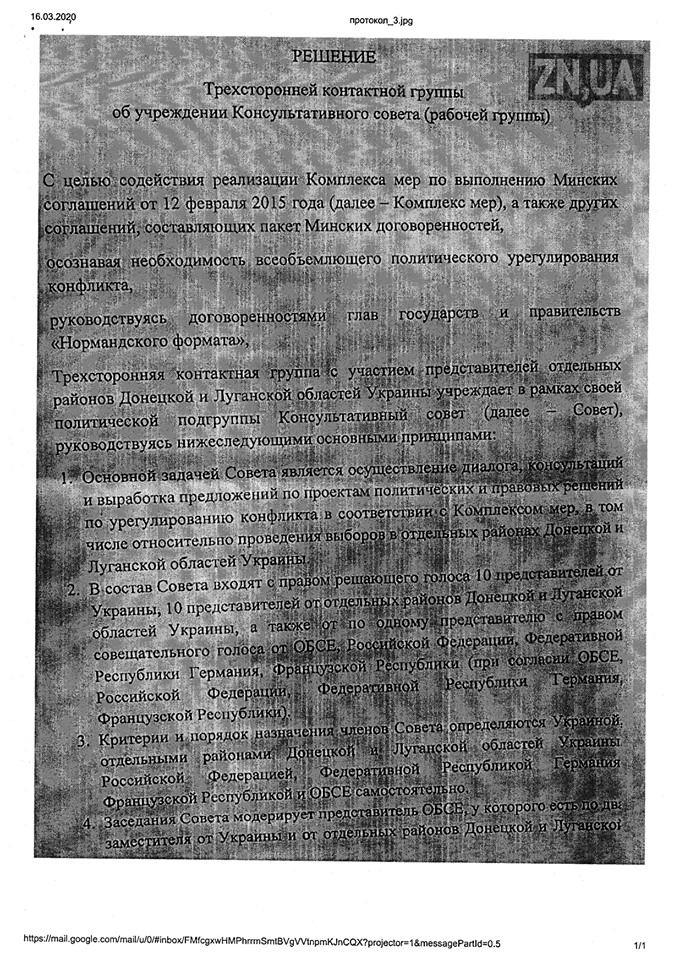 16.03.2020
протокол_3.jpg
РЕШЕНИЕ
ZN,UA
Трехсторонней контактной группы
об учреждении Консультативного совета (рабочей группы)
С целью содействия реализации Комплекса мер по выполнению Минских
соглашений от 12 февраля 2015 года (далее – Комплекс мер), а также других
соглашений, составляющих пакет Минских договоренностей,
осознавая необходимость всеобъемлющего политического урегулирования
конфликта,
руководствуясь договоренностями глав государств и правительств
«Нормандского формата»,
Трехсторонняя контактная группа с участием представителей отдельных
районов Донецкой и Луганской областей Украины учреждает в рамках своей
политической подгруппы Консультативный совет (далее – Совет),
руководствуясь нижеследующими основными принципами:
1. Основной задачей Совета является осуществление диалога, консультаций
и выработка предложений по проектам политических и правовых решений
по урегулированию конфликта в соответствии с Комплексом мер, в том
числе относительно проведения выборов в отдельных районах Донецкой и
Луганской областей Украины.
2. В состав Совета входят с правом решающего голоса 10 представителей от
Украины, 10 представителей от отдельных районов Донецкой и Луганской
областей Украины, а также от по одному представителю с правом
совещательного голоса от ОБСЕ, Российской Федерации, Федеративной
Республики Германия, Французской Республики (при согласии ОБСЕ,
Российской Федерации, Федеративной Республики Германия,
Французской Республики).
3. Критерии и порядок назначения членов Совета определяются Украиной,
отдельными районами Донецкой и Луганской областей Украины
Российской Федерацией, Федеративной Республикой Германия
Французской Республикой и ОБСЕ самостоятельно.
4. Заседания Совета модерирует представитель ОБСЕ, у которого есть по два
заместителя от Украины и от отдельных районов Донецкой и Луганской
https://mail.google.com/mail/u/0/#inbox/FMfcgxwHMPhrrmSmtBVgVVtnpmKJnCQX?projector=1&messagePartId=0.5
1/1